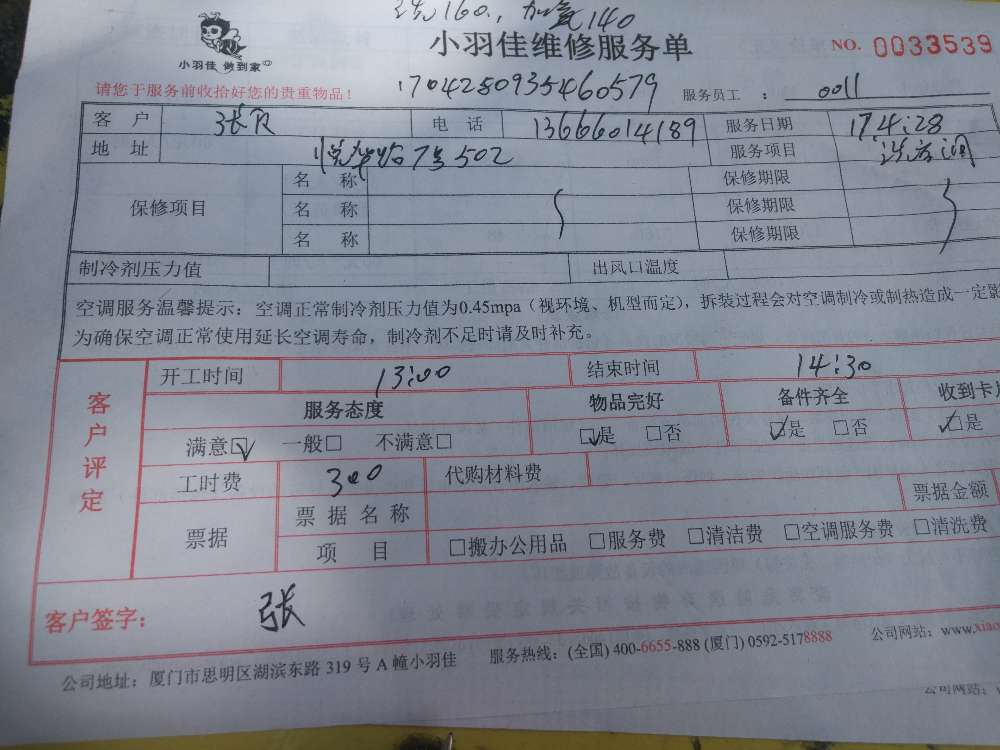 洗160, 加氟140
小羽佳 做到家
小羽佳维修服务单
NO. 0033539
请您于服务前收拾好您的贵重物品!
1704280935460579
服务员工 : 0011
客 户 张 电 话 13666014189 服务日期 17.4.28
地 址 7号502 服务项目 洗空调
保修项目
名 称 保修期限
名 称 保修期限
名 称 保修期限
制冷剂压力值 出风口温度
空调服务温馨提示: 空调正常制冷剂压力值为0.45mpa (视环境、机型而定), 拆装过程会对空调制冷或制热造成一定影
为确保空调正常使用延长空调寿命, 制冷剂不足时请及时补充。
客户评定
开工时间 13:00 结束时间 14:30
服务态度 物品完好 备件齐全 收到卡
满意☑ 一般□ 不满意□ ☑是 □否 ☑是 □否 ☑是
工时费 300 代购材料费
票据 票据名称 票据金额
项 目 □搬办公用品 □服务费 □清洁费 □空调服务费 □清洗费
客户签字: 张
公司地址: 厦门市思明区湖滨东路 319 号 A 幢小羽佳 服务热线: (全国) 400-6655-888 (厦门) 0592-5178888 公司网站: www.xiao
公司网站: